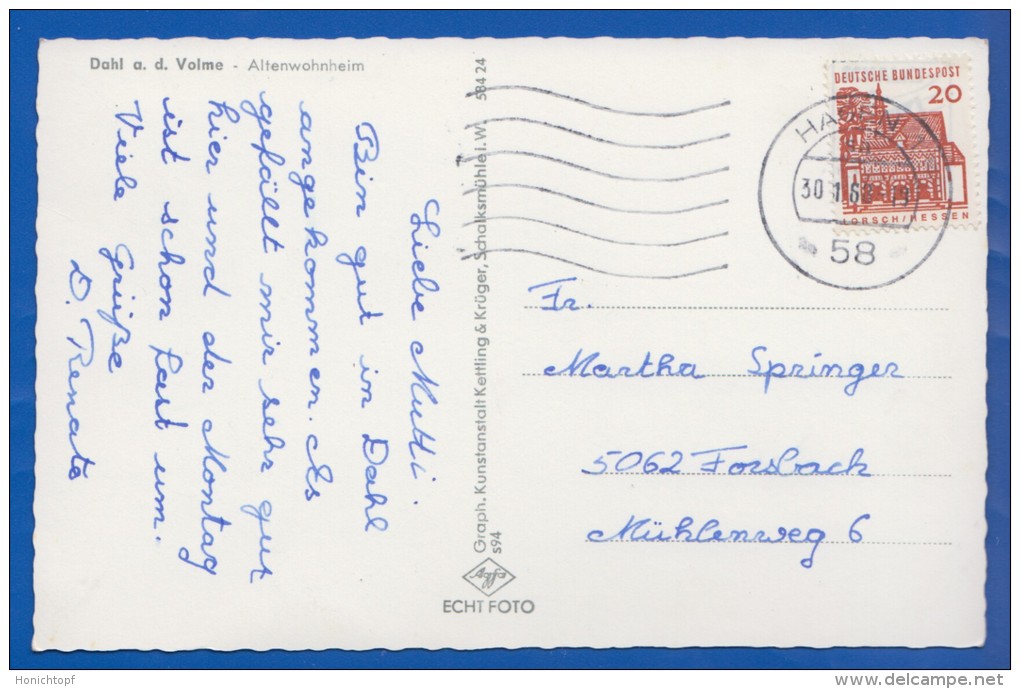 Dahl a. d. Volme - Altenwohnheim
Liebe Mutti.
Bin gut in Dahl
angekommen. Es
gefällt mir sehr gut
hier und der Montag
ist schon fast um.
Viele Grüße
D. Renate
Graph. Kunstanstalt Kettling & Krüger, Schalksmühle i. W. 584 24
s94
Agfa
ECHT FOTO
DEUTSCHE BUNDESPOST
20
LORSCH/HESSEN
HAGEN
58
Fr.
Martha Springer
5062 Forsbach
Mühlenweg 6
Honichtopf
www.delcampe.net